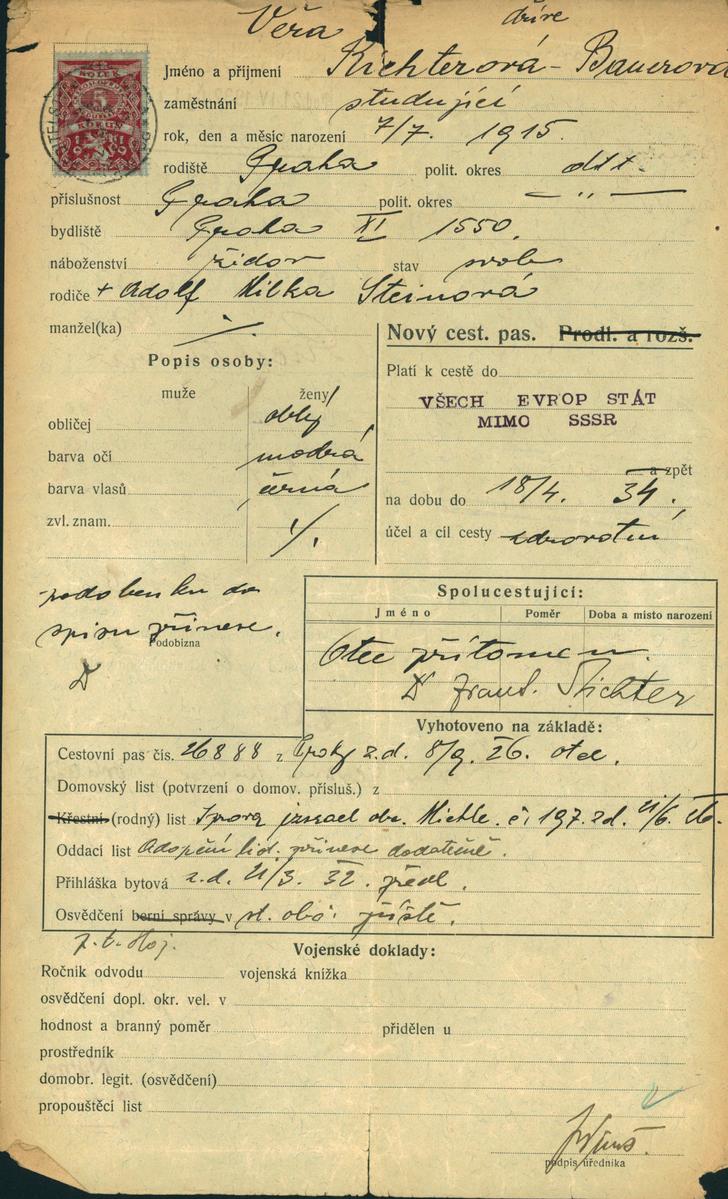 Věra dříve
Jméno a příjmení Richterová - Bauerová
zaměstnání studující
rok, den a měsíc narození 7/7. 1915.
rodiště Praha polit. okres dtt.
příslušnost Praha polit. okres — „ —
bydliště Praha XI 1550.
náboženství židov stav svob
rodiče + Adolf Milka Steinová
manžel(ka) ·/.
Nový cest. pas. Prodl. a rozš.
Popis osoby:
muže ženy
obličej oblý
barva očí modrá
barva vlasů černá
zvl. znam. ·/.
Platí k cestě do
VŠECH EVROP STÁT
MIMO SSSR
a zpět
na dobu do 18/4. 34.
účel a cíl cesty zdravotní
podobenku do
spisu přinese.
Podobizna
Spolucestující:
Jméno Poměr Doba a místo narození
Otec přítomen.
Dr Frant. Richter
Vyhotoveno na základě:
Cestovní pas čís. 26888 z Prahy z.d. 8/9. 26. otec.
Domovský list (potvrzení o domov. přísluš.) z
Křestní (rodný) list israel obc. Michle. č. 197. zd. 21/6. 26.
Oddací list Adopční lid. přinese dodatečně.
Přihláška bytová z.d. 21/3. 32. předl.
Osvědčení berní správy v st. obč. příště.
Vojenské doklady:
Ročník odvodu vojenská knížka
osvědčení dopl. okr. vel. v
hodnost a branný poměr přidělen u
prostředník
domobr. legit. (osvědčení)
propouštěcí list
podpis úředníka